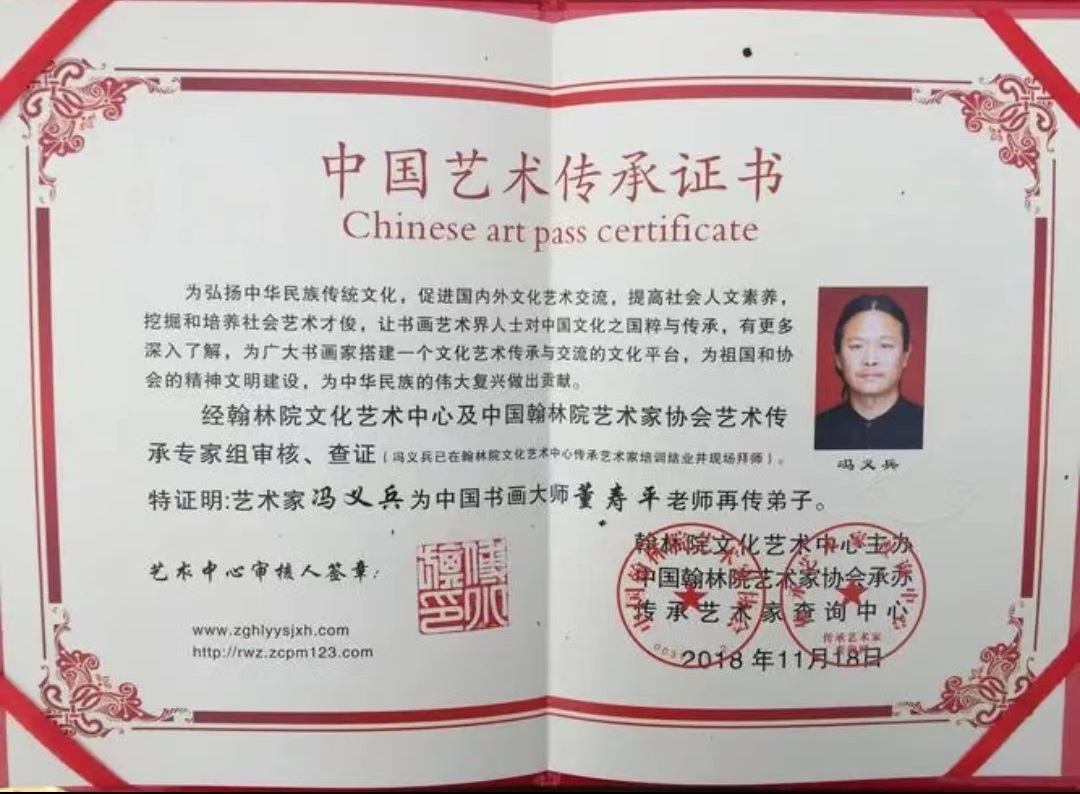 中国艺术传承证书
Chinese art pass certificate
为弘扬中华民族传统文化，促进国内外文化艺术交流，提高社会人文素养，
挖掘和培养社会艺术才俊，让书画艺术界人士对中国文化之国粹与传承，有更多
深入了解，为广大书画家搭建一个文化艺术传承与交流的文化平台，为祖国和协
会的精神文明建设，为中华民族的伟大复兴做出贡献。
经翰林院文化艺术中心及中国翰林院艺术家协会艺术传
承专家组审核、查证（冯义兵已在翰林院文化艺术中心传承艺术家培训结业并现场拜师）。
特证明:艺术家冯义兵为中国书画大师董寿平老师再传弟子。
冯义兵
艺术中心审核人签章：
www.zghlyysjxh.com
http://rwz.zcpm123.com
翰林院文化艺术中心主办
中国翰林院艺术家协会承办
传承艺术家查询中心
2018年11月18日
传承艺术家